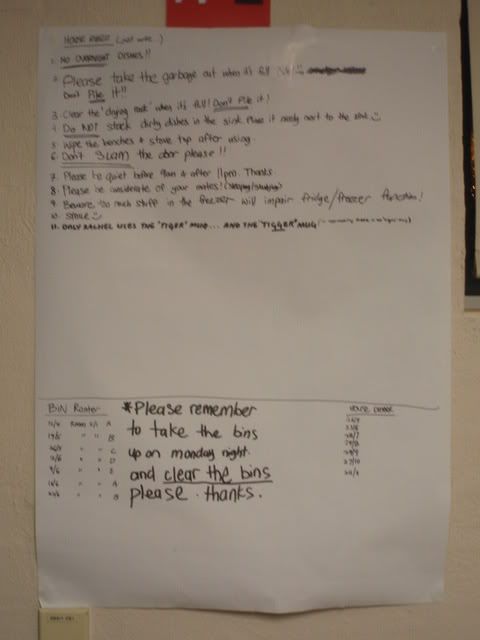 HOUSE RULES
1. NO OVERNIGHT DISHES!!
2. Please take the garbage out when it's full
Don't Pile it!!
3. Clear the "drying rack" when it's full! Don't Pile it!
4. Do NOT stack dirty dishes in the sink. Place it neatly next to the sink. ☺
5. Wipe the benches & stove top after using.
6. Don't SLAM the door please!!
7. Please be quiet before 9am & after 11pm. Thanks.
8. Please be considerate of your mates! (Sleeping/Studying)
9. Beware, too much stuff in the freezer will impair fridge/freezer function!
10. SMILE ☺
11. ONLY RACHEL USES THE "TIGER" MUG... AND THE "TIGGER" MUG
BIN Roster
Room A
" " B
" " C
" " D
" " A
" " B
*Please remember
to take the bins
up on monday night.
and clear the bins
please. thanks.
HOUSE DINNER